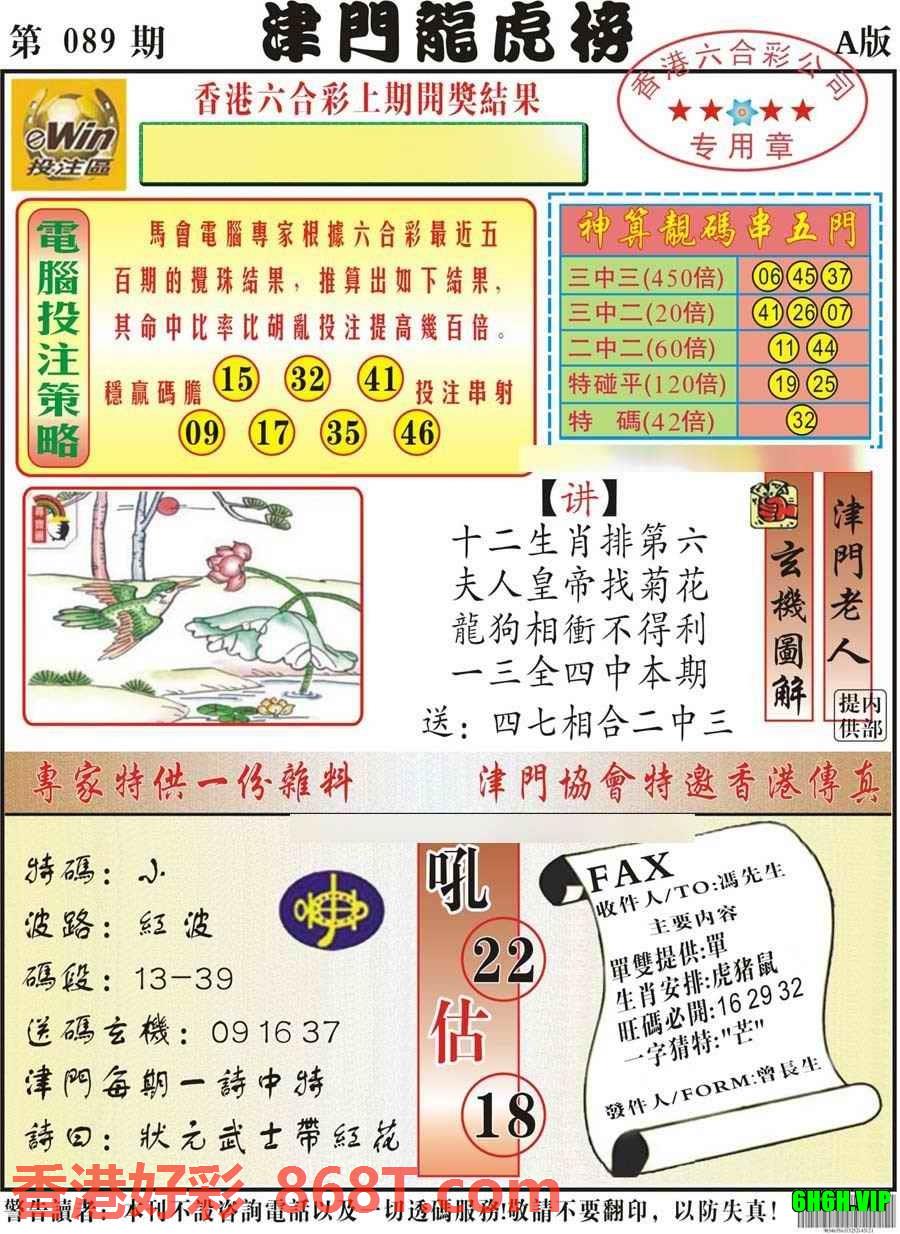 第 089 期
津門龍虎榜
A版
香港六合彩上期開獎結果
eWin
投注區
香港六合彩公司
★★★★
专用章
電腦投注策略
馬會電腦專家根據六合彩最近五
百期的攪珠結果，推算出如下結果，
其命中比率比胡亂投注提高幾百倍。
穩贏碼膽 15 32 41 投注串射
09 17 35 46
神算靚碼串五門
三中三(450倍) 06 45 37
三中二(20倍) 41 26 07
二中二(60倍) 11 44
特碰平(120倍) 19 25
特 碼(42倍) 32
【讲】
十二生肖排第六
夫人皇帝找菊花
龍狗相衝不得利
一三全四中本期
送：四七相合二中三
玄機圖解
津門老人
内部提供
專家特供一份雜料
津門協會特邀香港傳真
特碼：小
波路：紅波
碼段：13-39
送碼玄機：09 16 37
津門每期一詩中特
詩曰：狀元武士帶紅花
吼
22
估
18
FAX
收件人/TO:馮先生
主要内容
單雙提供:單
生肖安排:虎猪鼠
旺碼必開:16 29 32
一字猜特:"芒"
發件人/FORM:曾長生
香港好彩 868T.com
警告讀者：本刊不設咨詢電話以及一切透碼服務!敬請不要翻印，以防失真!
6H6H.VIP